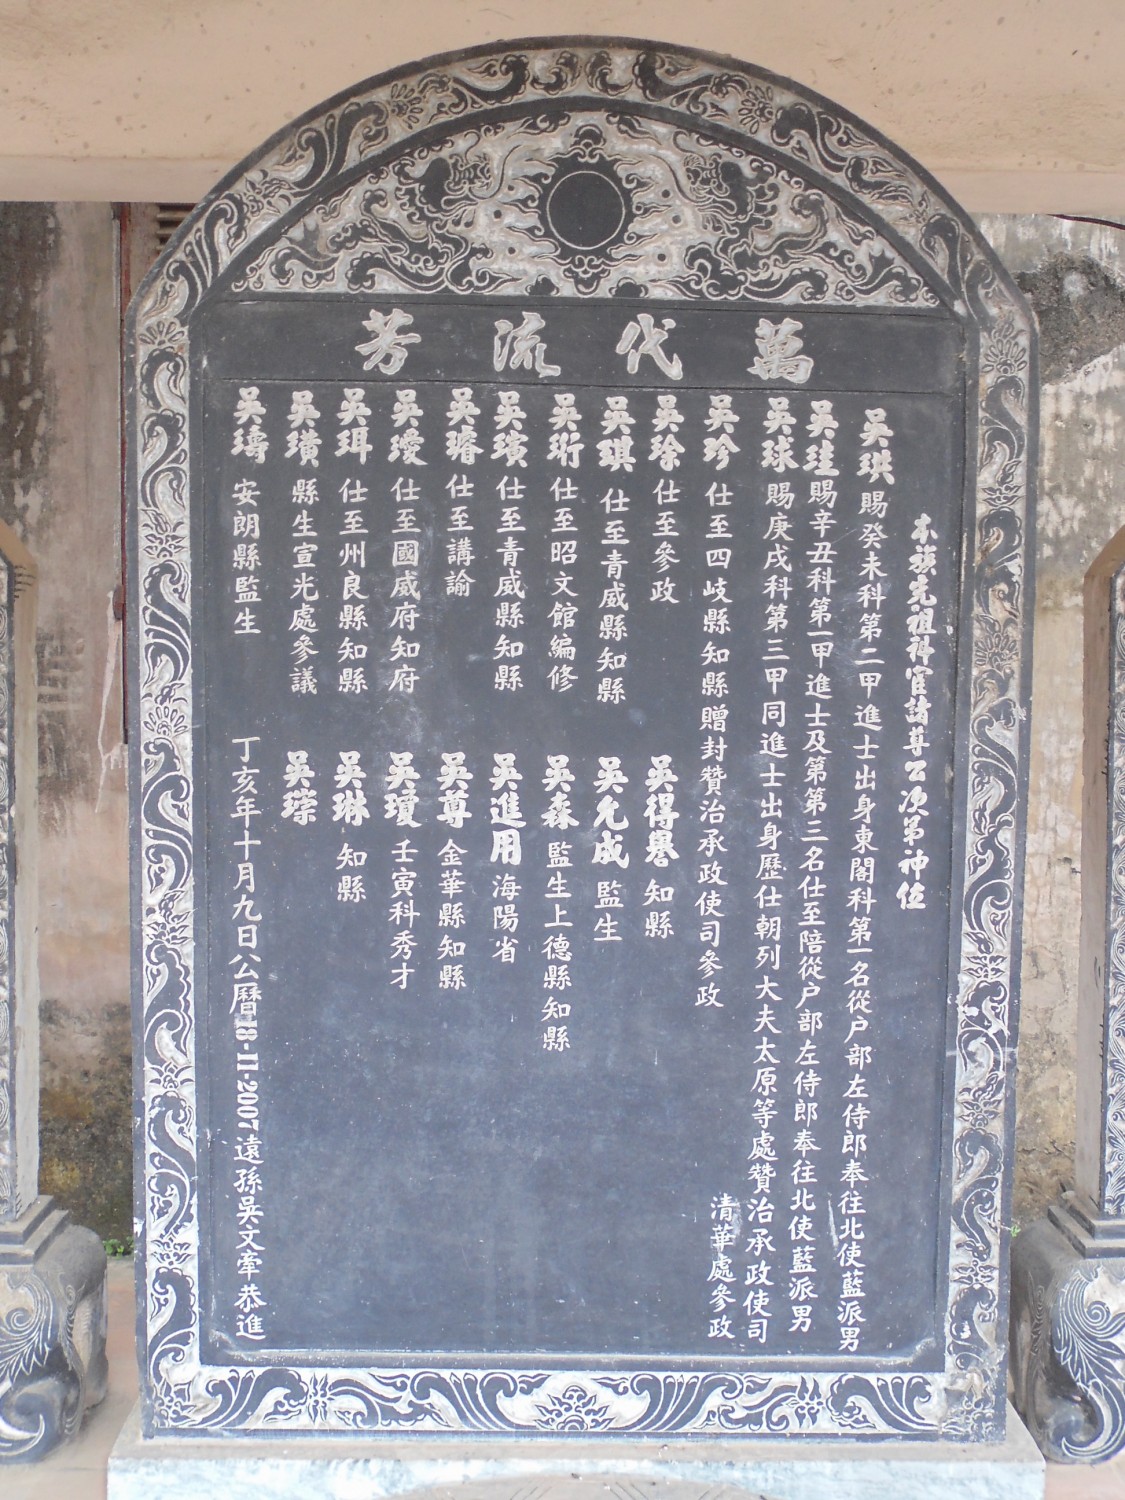 萬代流芳
本族先祖裨宦諸尊公次第神位
吳珙賜癸未科第二甲進士出身東閣科第一名從户部左侍郎奉往北使藍派男
吳珪賜辛丑科第一甲進士及第第三名仕至陪從户部左侍郎奉往北使藍派男
吳球賜庚戌科第三甲同進士出身歷仕朝列大夫太原等處贊治承政使司
清華處參政
吳珍仕至四岐縣知縣贈封贊治承政使司參政
吳珍仕至參政
吳得譽知縣
吳琪仕至青威縣知縣
吳允成監生
吳珩仕至昭文館編修
吳森監生上德縣知縣
吳璸仕至青威縣知縣
吳進用海陽省
吳璿仕至講諭
吳尊金華縣知縣
吳璦仕至國威府知府
吳瓊壬寅科秀才
吳珥仕至州良縣知縣
吳琳知縣
吳璜縣生宣光處參議
吳琮
吳璹安朗縣監生
丁亥年十月九日公曆18-11-2007遠孫吳文牽恭進